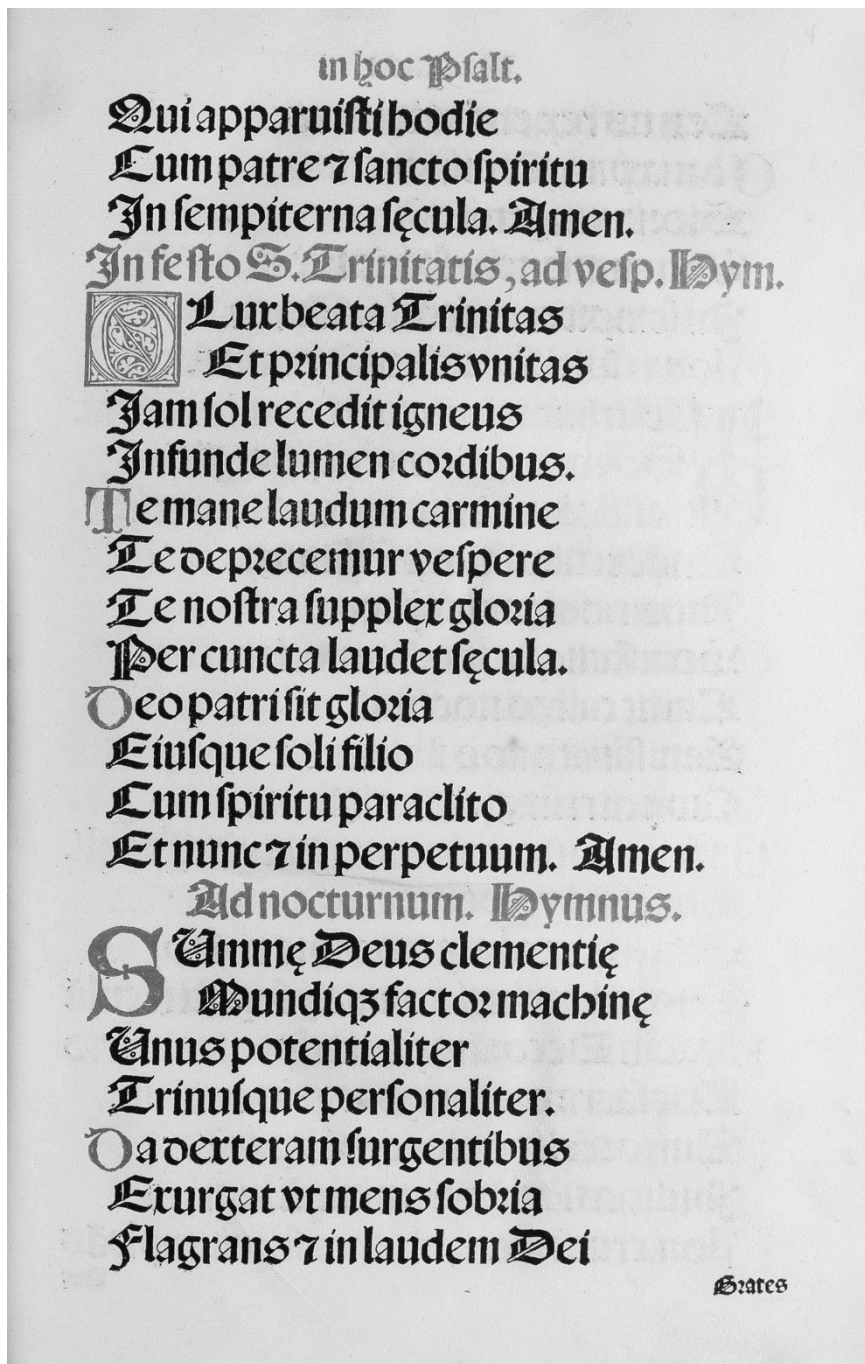 in hoc Psalt.
Qui apparuisti hodie
Cum patre ⁊ sancto spiritu
In sempiterna sęcula. Amen.
In festo S. Trinitatis, ad vesp. Hym.
O Lux beata Trinitas
Et principalis vnitas
Jam sol recedit igneus
Infunde lumen cordibus.
Te mane laudum carmine
Te deprecemur vespere
Te nostra supplex gloria
Per cuncta laudet sęcula.
Deo patri sit gloria
Eiusque soli filio
Cum spiritu paraclito
Et nunc ⁊ in perpetuum. Amen.
Ad nocturnum. Hymnus.
SUmmę Deus clementię
Mundiqꝫ factor machinę
Unus potentialiter
Trinusque personaliter.
Da dexteram surgentibus
Exurgat vt mens sobria
Flagrans ⁊ in laudem Dei
Grates